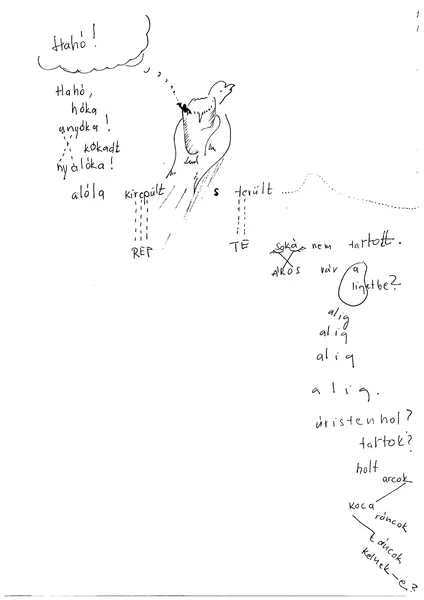 Hahó!
Hahó,
hóka
anyóka!
kókadt
nyólóka!
alóla kirepült s terült
REP TE
soká nem tartott.
ÁKOS vár a
ligetbe?
alig
alig
alig
alig.
úristenhol?
tartok?
holt
arcok
koca
ráncok
táncok
kelnek-e?